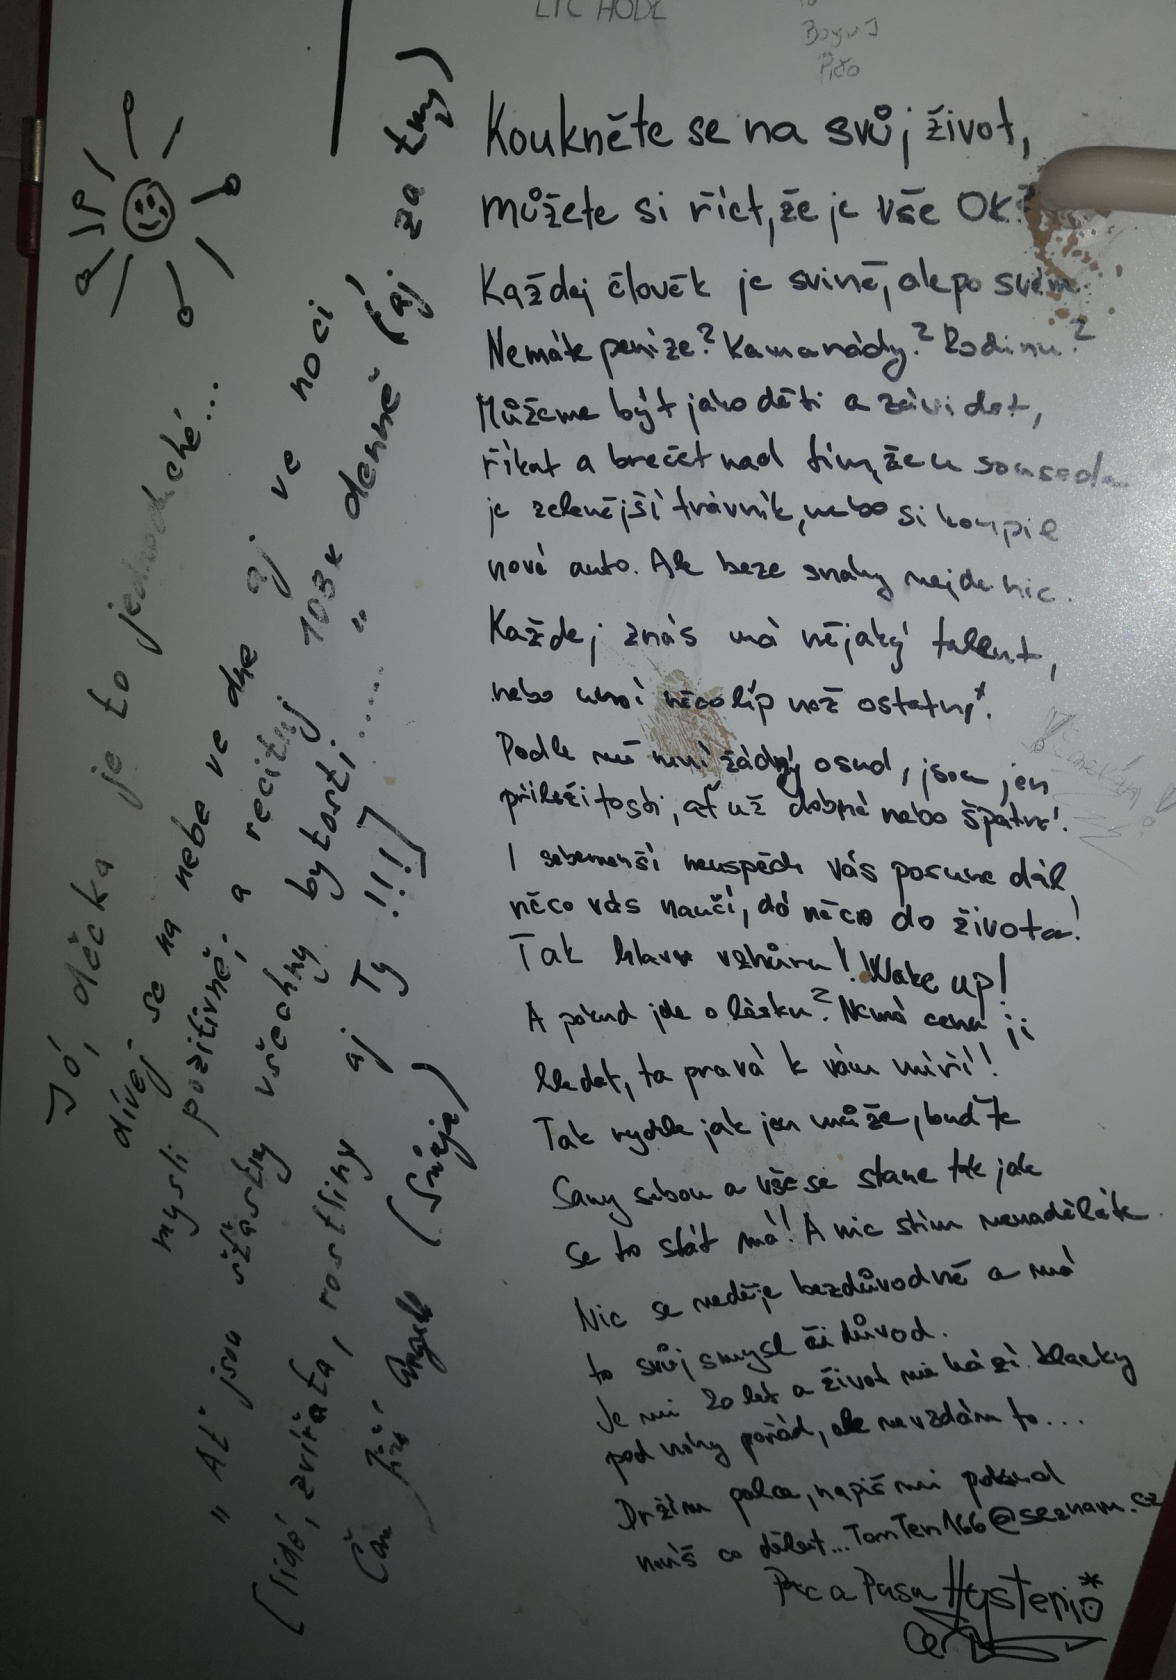 Boyu J
Koukněte se na svůj život,
můžete si říct, že je vše OK?
Každej člověk je svině, ale po svém.
Nemáte peníze? Kamarády? Rodinu?
Můžeme být jako děti a závidět,
říkat a brečet nad tím, že u souseda
je zelenější trávník, nebo si koupil
nové auto. Ale beze snahy nejde nic.
Každej z nás má nějaký talent,
nebo umí něco líp než ostatní.
Podle mě není žádný osud, jsou jen
příležitosti, ať už dobré nebo špatné!
I sebemenší neuspěch vás posune dál,
něco vás naučí, dá něco do života!
Tak hlavu vzhůru! Wake up!
A pokud jde o lásku? Nemá cenu ji
hledat, ta pravá k vám míří!
Tak rychle jak jen může, buďte
Samy sebou a vše se stane tak jak
se to stát má! A nic stím nenaděláte.
Nic se neděje bezdůvodně a má
to svůj smysl či důvod.
Je mi 20 let a život mě hází klacky
pod nohy pořád, ale nevzdám to...
Držím palce, napiš mi pokud
nevíš co dělat... TomTen166@seznam.cz
Pac a Pusu Hysterio*
Jó, děcka je to jednoduché...
dívej se na nebe ve dne aj ve noci
mysli pozitivně; a recituj 108x denně (aj za tmy)
"Ať jsou šťastny všechny bytosti....."
[lidé, zvířata, rostliny aj Ty !!!]
(Snója)